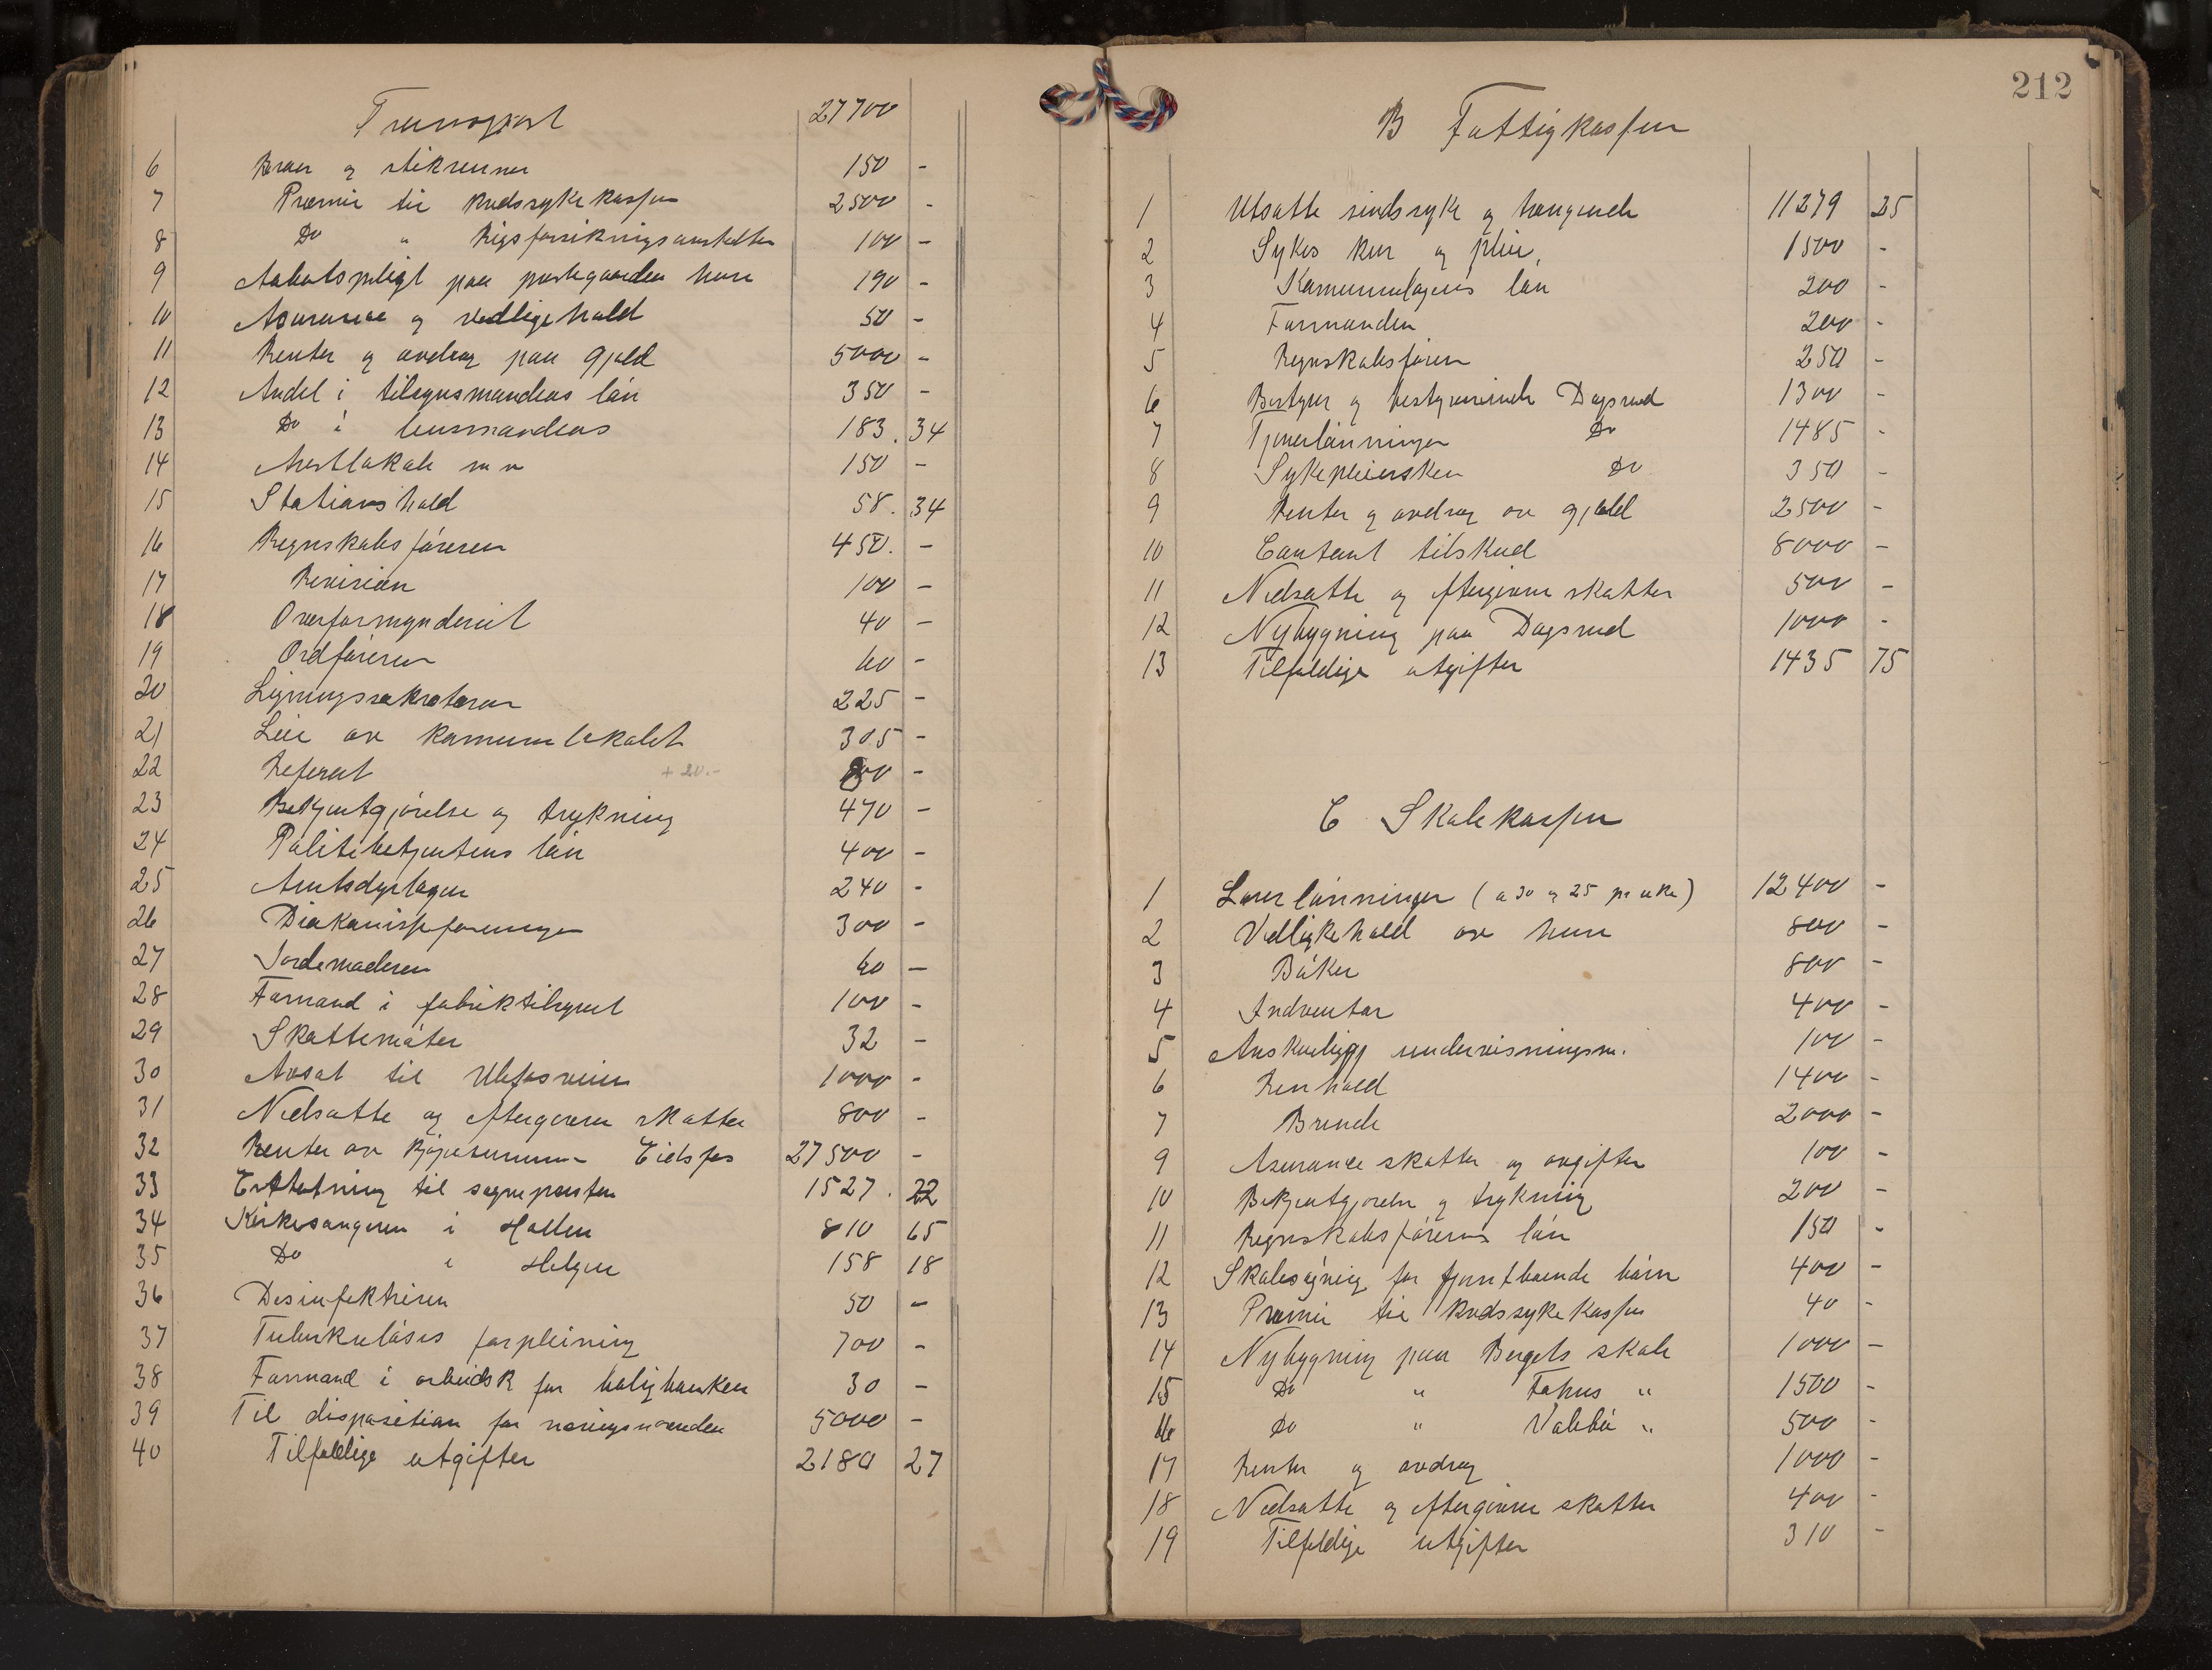 Transport 27700
6 Broer og stikrenner 150 -
7 Præmie til kredssykekassen 2500 -
8 Do " Rigsforsikringsanstalten 100 -
9 Aabotspligt paa prestegaarden huse 190 -
10 Asurance og vedligehold 50 -
11 Renter og avdrag paa gjæld 5000 -
12 Andel i tilsynsmandens løn 350 -
13 Do i lensmandens 183. 34
14 Arestlokale m v 150 -
15 Stationshold 58. 34
16 Regnskabsføreren 450. -
17 Revision 100 -
18 Overformynderiet 40 -
19 Ordføreren 60 -
20 Ligningssekretæren 225 -
21 Leie av komunelokalet 305 -
22 Referat + 20.- 800 -
23 Bekjentgjørelse og trykning 470 -
24 Politibetjentens løn 400 -
25 Amtsdyrlægen 240 -
26 Diakonisseforeningen 300 -
27 Jordemoderen 60 -
28 Formand i fabriktilsynet 100 -
29 Skattemøter 32 -
30 Avsat til Ulefosveien 1000 -
31 Nedsatte og eftergivne skatter 800 -
32 Renter av kjøpesummen Eidsfos 27500 -
33 Erstatning til sognepresten 1527. 22
34 Kirkesangeren i Hollen 810 65
35 Do i Helgen 158 18
36 Desinfektøren 50 -
37 Tuberkuløses forpleining 700 -
38 Formand i arbeidsk for boligbanken 30 -
39 Til disposition for næringsnævnden 5000 -
40 Tilfældige utgifter 2180 27
212
B Fattigkassen
1 Utsatte sindssyke og trængende 11279 25
2 Sykes kur og pleie, 1500 -
3 Komunelægens løn 200 -
4 Formanden 200 -
5 Regnskabsføren 250 -
6 Bestyrer og bestyrerinde Dagsrud 1300 -
7 Tjenerlønninger Do 1485 -
8 Sykepleiersken Do 350 -
9 Renter og avdrag av gjæld 2500 -
10 Contant tilskud 8000 -
11 Nedsatte og eftergivne skatter 500 -
12 Nybygning paa Dagsrud 1000 -
13 Tilfældige utgifter 1435 75
C Skolekassen
1 Lærerlønninger (a 30 og 25 pr uke) 12400 -
2 Vedlikehold av huse 800 -
3 Bøker 800 -
4 Indventar 400 -
5 Anskuelige undervisningsm. 100 -
6 Renhold 1400 -
7 Brende 2000 -
9 Asurance skatter og avgifter 100 -
10 Bekjentgjørelse og trykning 200 -
11 Regnskabsførerens løn 150 -
12 Skolesøgning for fjerntboende børn 400 -
13 Præmie til kredssykekassen 40 -
14 Nybygning paa Bergets skole 1000 -
15 Do " Fahus " 1500 -
16 Do " Valebø " 500 -
17 Renter og avdrag 1000 -
18 Nedsatte og eftergivne skatter 400 -
19 Tilfeldige utgifter 310 -